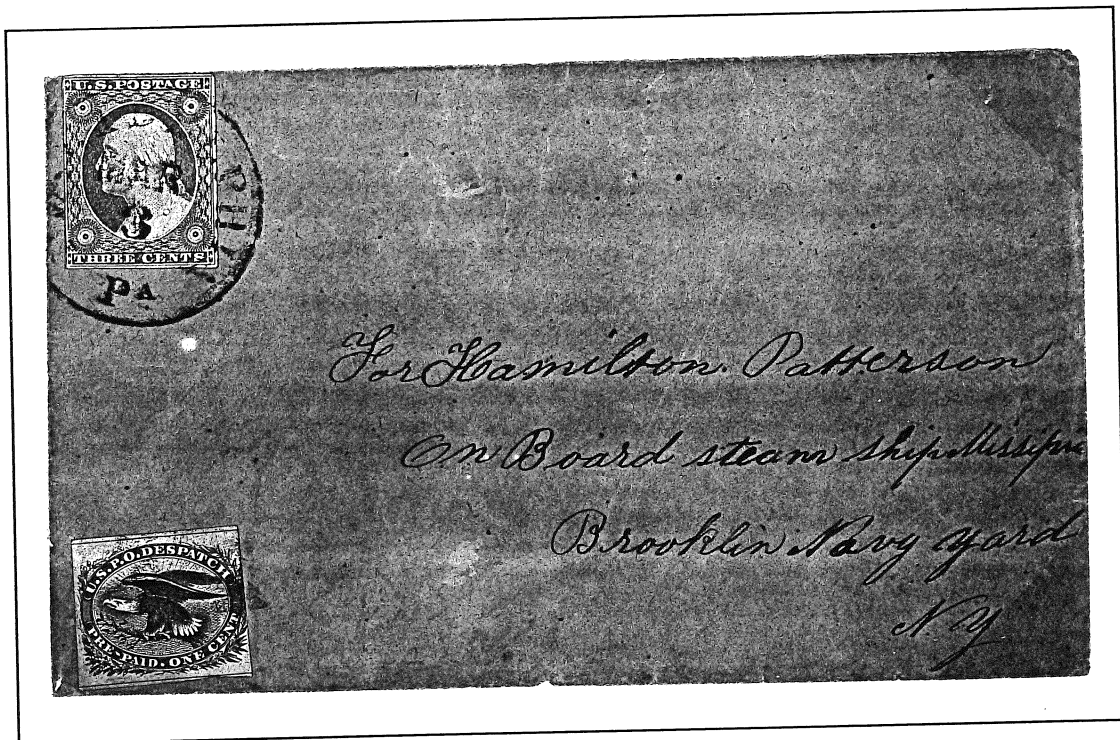 U.S. POSTAGE
THREE CENTS
PA
For Hamilton Patterson
On Board steam ship
Brooklin Navy yard
N Y
U.S.P.O. DESPATCH
PRE-PAID. ONE CENT